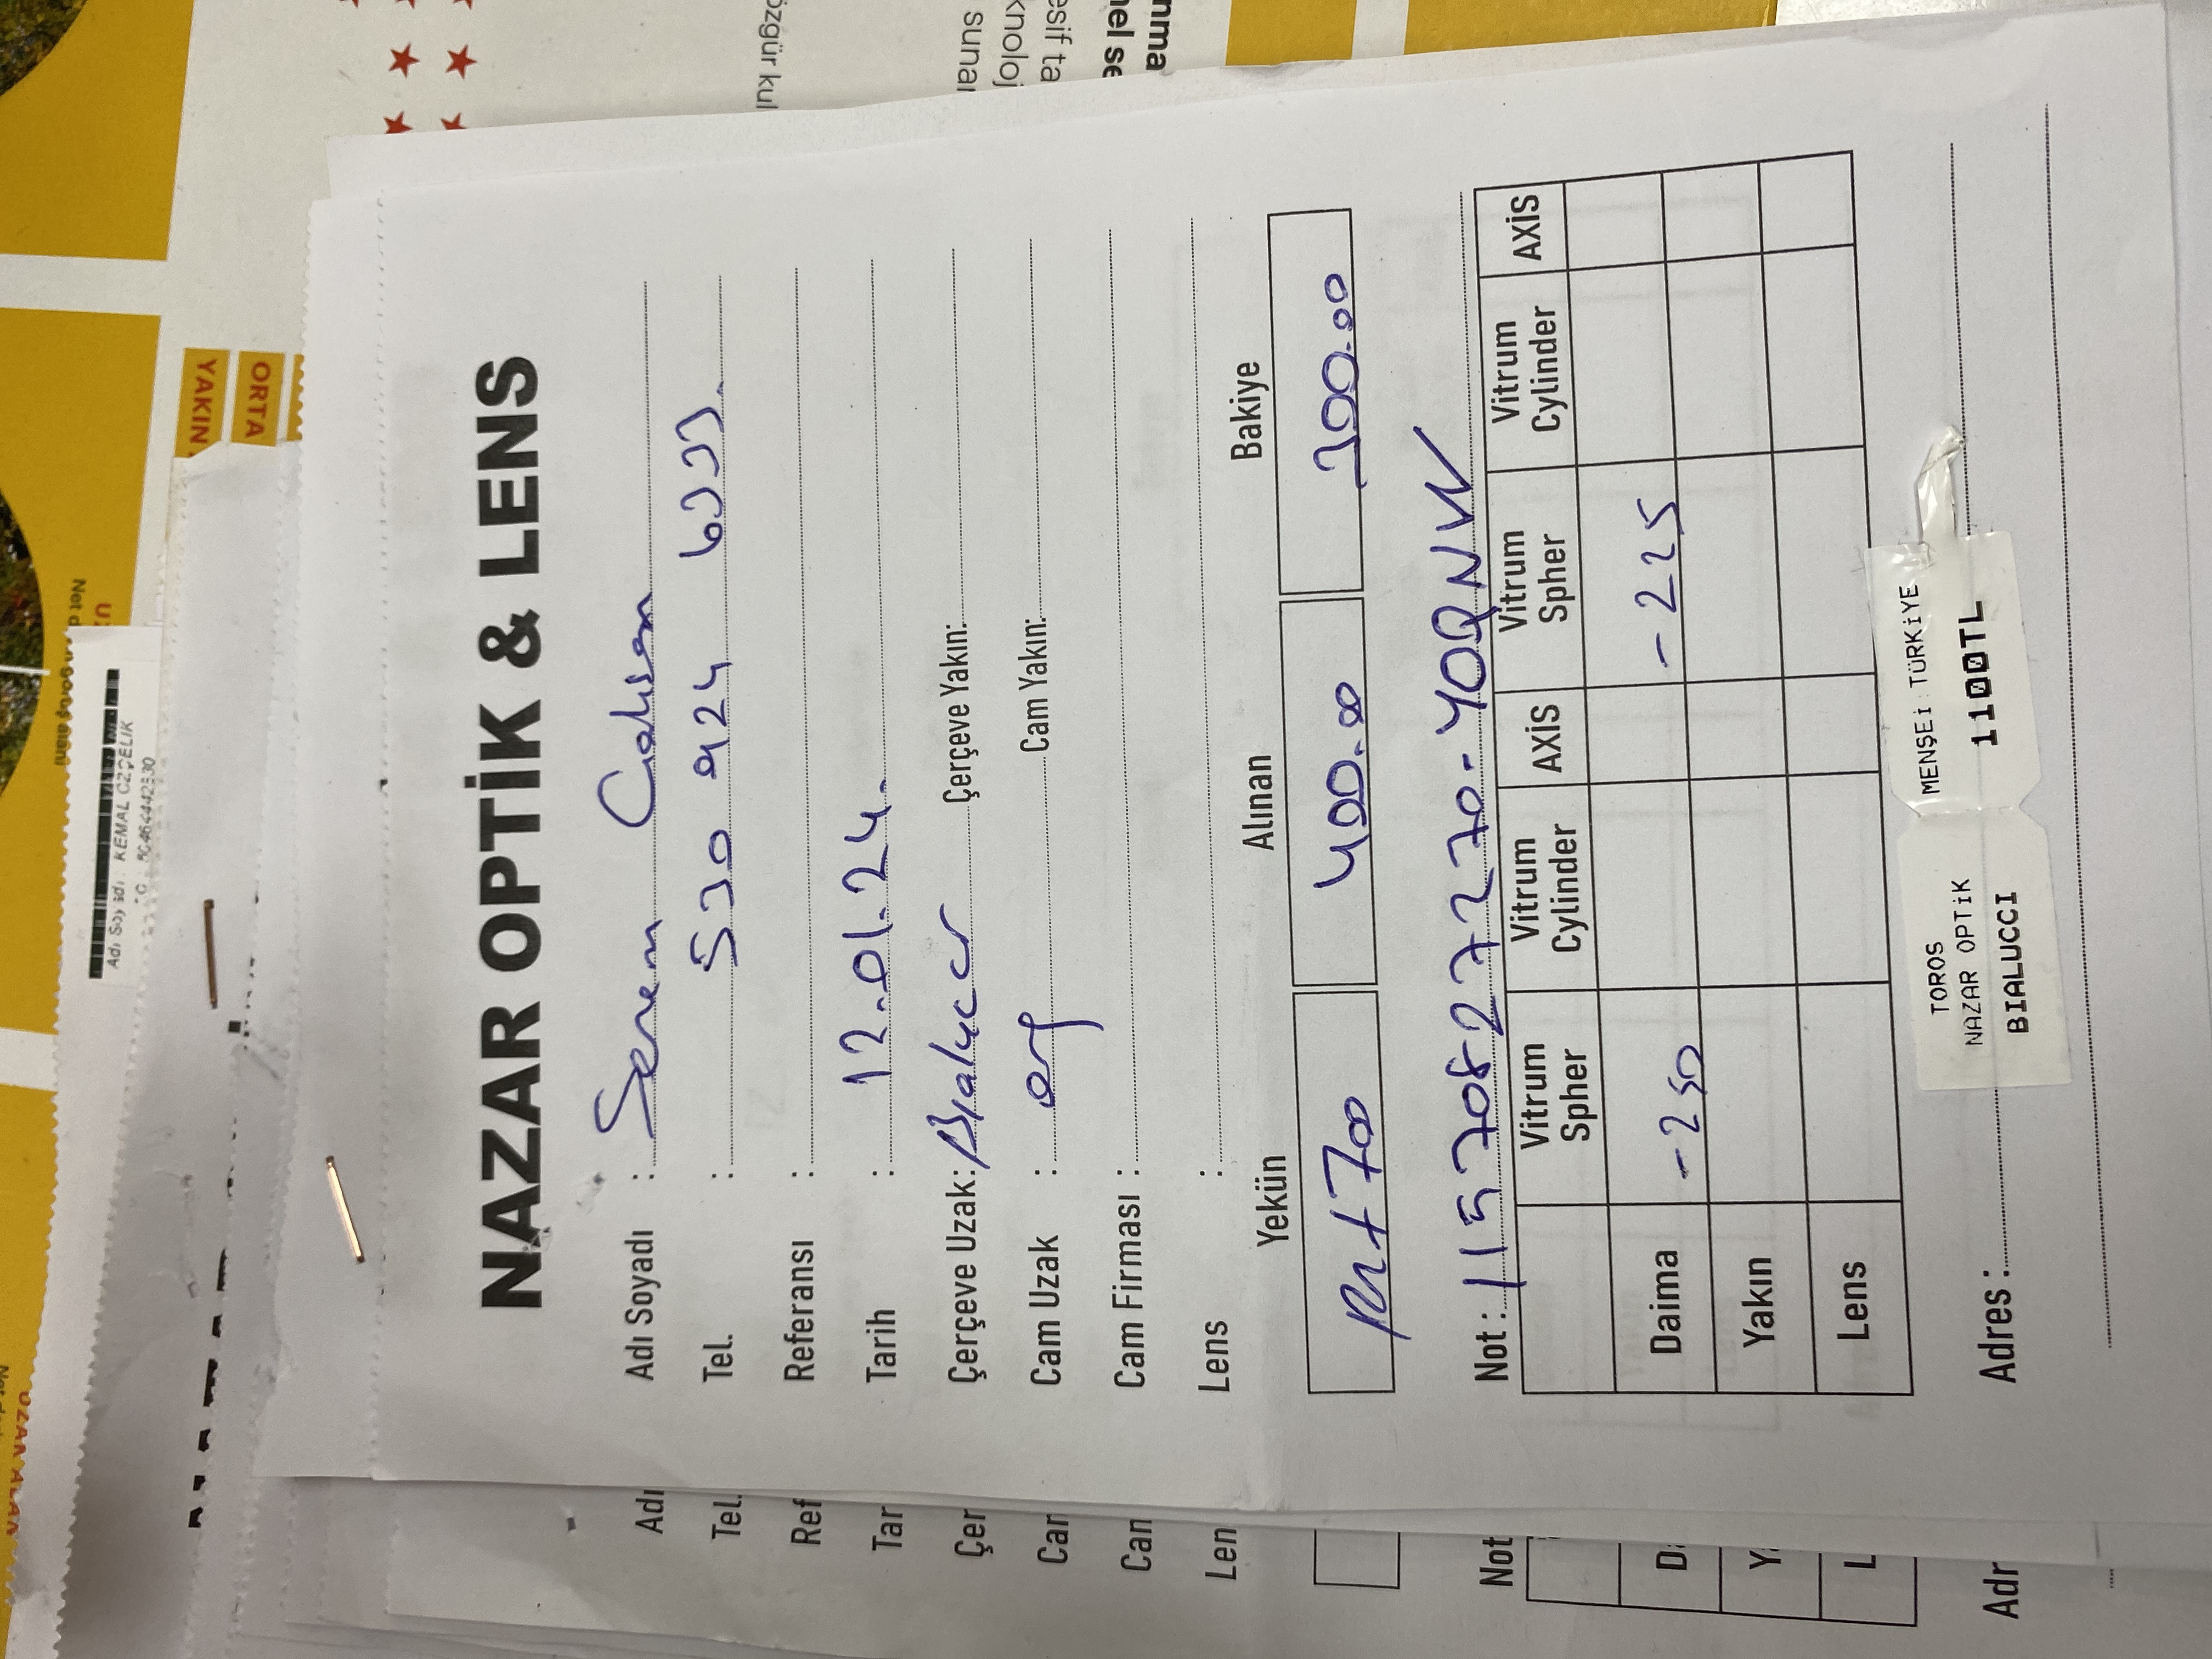 UZAK ALAN
Net d
Net görüş alanı
UZ
Adı Soyadı : KEMAL ÖZÇELİK
50464442530
YAKIN
ORTA
NAZAR OPTİK & LENS
Adı Soyadı : Senem Calısan
Tel. : 530 924 6333.
Referansı :
Tarih : 12.01.24.
Çerçeve Uzak: Bıalucci Çerçeve Yakın:
Cam Uzak : org Cam Yakın:
Cam Firması :
Lens :
Yekün Alınan Bakiye
rct+700 400.00 300.00
Not : 11570827270-YOQNW
Vitrum Spher Vitrum Cylinder AXİS Vitrum Spher Vitrum Cylinder AXİS
Daima -250 -225
Yakın
Lens
TOROS
NAZAR OPTİK
BIALUCCI
MENŞEİ : TÜRKİYE
1100TL
Adres :
Adı
Tel.
Ref
Tar
Çer
Cam
Cam
Len
Not
D
Y
L
Adr
özgür kul
sunar
knoloj
esif ta